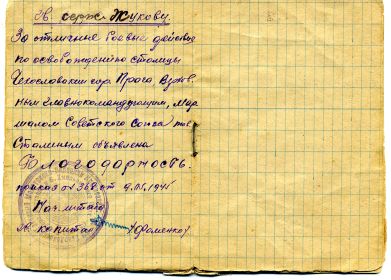 Жукову.
За отличные боевые действия
по освобождению столицы
Чехословакии гор Прага Верхов-
ным главнокомандующим, Мар
шалом Советского Союза тов.
Сталиным объявлена
Благодарность.
приказ от 368 от 9.05.1945
Нач. штаба
капитан